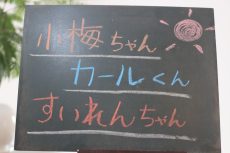 小梅ちゃん
カールくん
すいれんちゃん